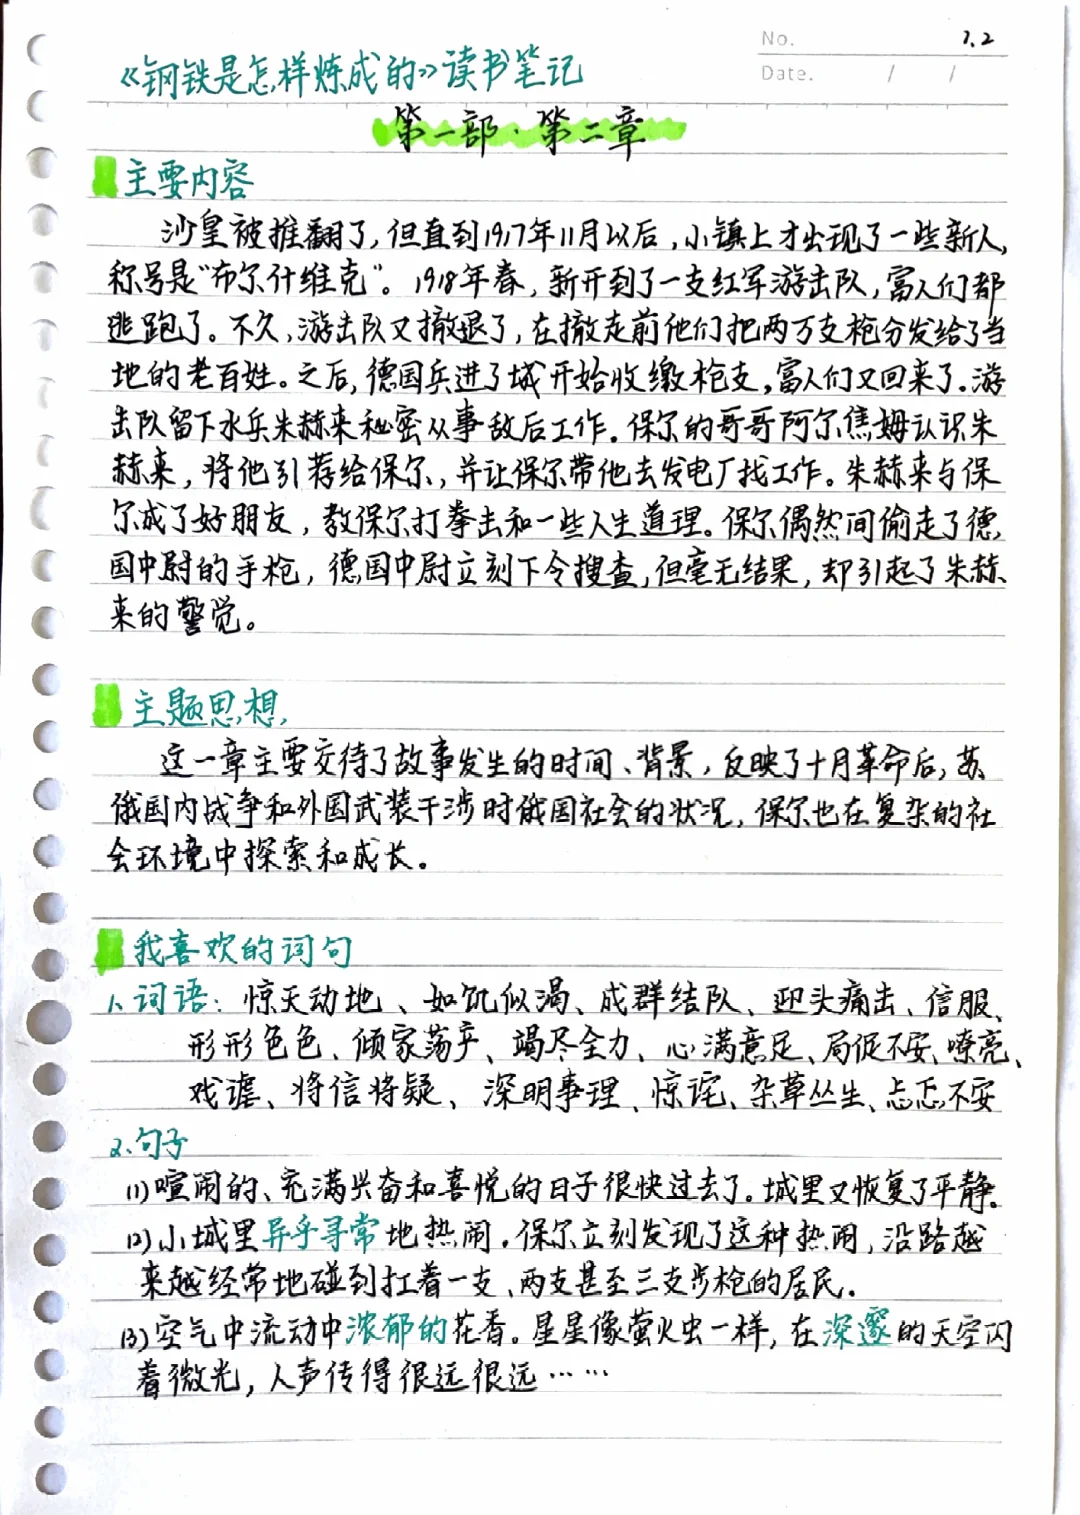 No. 1.2
《钢铁是怎样炼成的》读书笔记
Date. / /
第一部·第二章
主要内容
沙皇被推翻了,但直到1917年11月以后,小镇上才出现了一些新人,
称号是“布尔什维克”。1918年春,新开到了一支红军游击队,富人们都
逃跑了。不久,游击队又撤退了,在撤走前他们把两万支枪分发给了当
地的老百姓。之后,德国兵进了城开始收缴枪支,富人们又回来了.游
击队留下水兵朱赫来秘密从事敌后工作.保尔的哥哥阿尔焦姆认识朱
赫来,将他引荐给保尔,并让保尔带他去发电厂找工作。朱赫来与保
尔成了好朋友,教保尔打拳击和一些人生道理。保尔偶然间偷走了德
国中尉的手枪,德国中尉立刻下令搜查,但毫无结果,却引起了朱赫
来的警觉。
主题思想
这一章主要交待了故事发生的时间、背景,反映了十月革命后,苏
俄国内战争和外国武装干涉时俄国社会的状况,保尔也在复杂的社
会环境中探索和成长。
我喜欢的词句
1.词语:惊天动地、如饥似渴、成群结队、迎头痛击、信服、
形形色色、倾家荡产、竭尽全力、心满意足、局促不安、嘹亮、
戏谑、将信将疑、深明事理、惊诧、杂草丛生、忐忑不安
2.句子
(1)喧闹的、充满兴奋和喜悦的日子很快过去了.城里又恢复了平静.
(2)小城里异乎寻常地热闹.保尔立刻发现了这种热闹,沿路越
来越经常地碰到扛着一支、两支甚至三支步枪的居民.
(3)空气中流动中浓郁的花香。星星像萤火虫一样,在深邃的天空闪
着微光,人声传得很远很远……